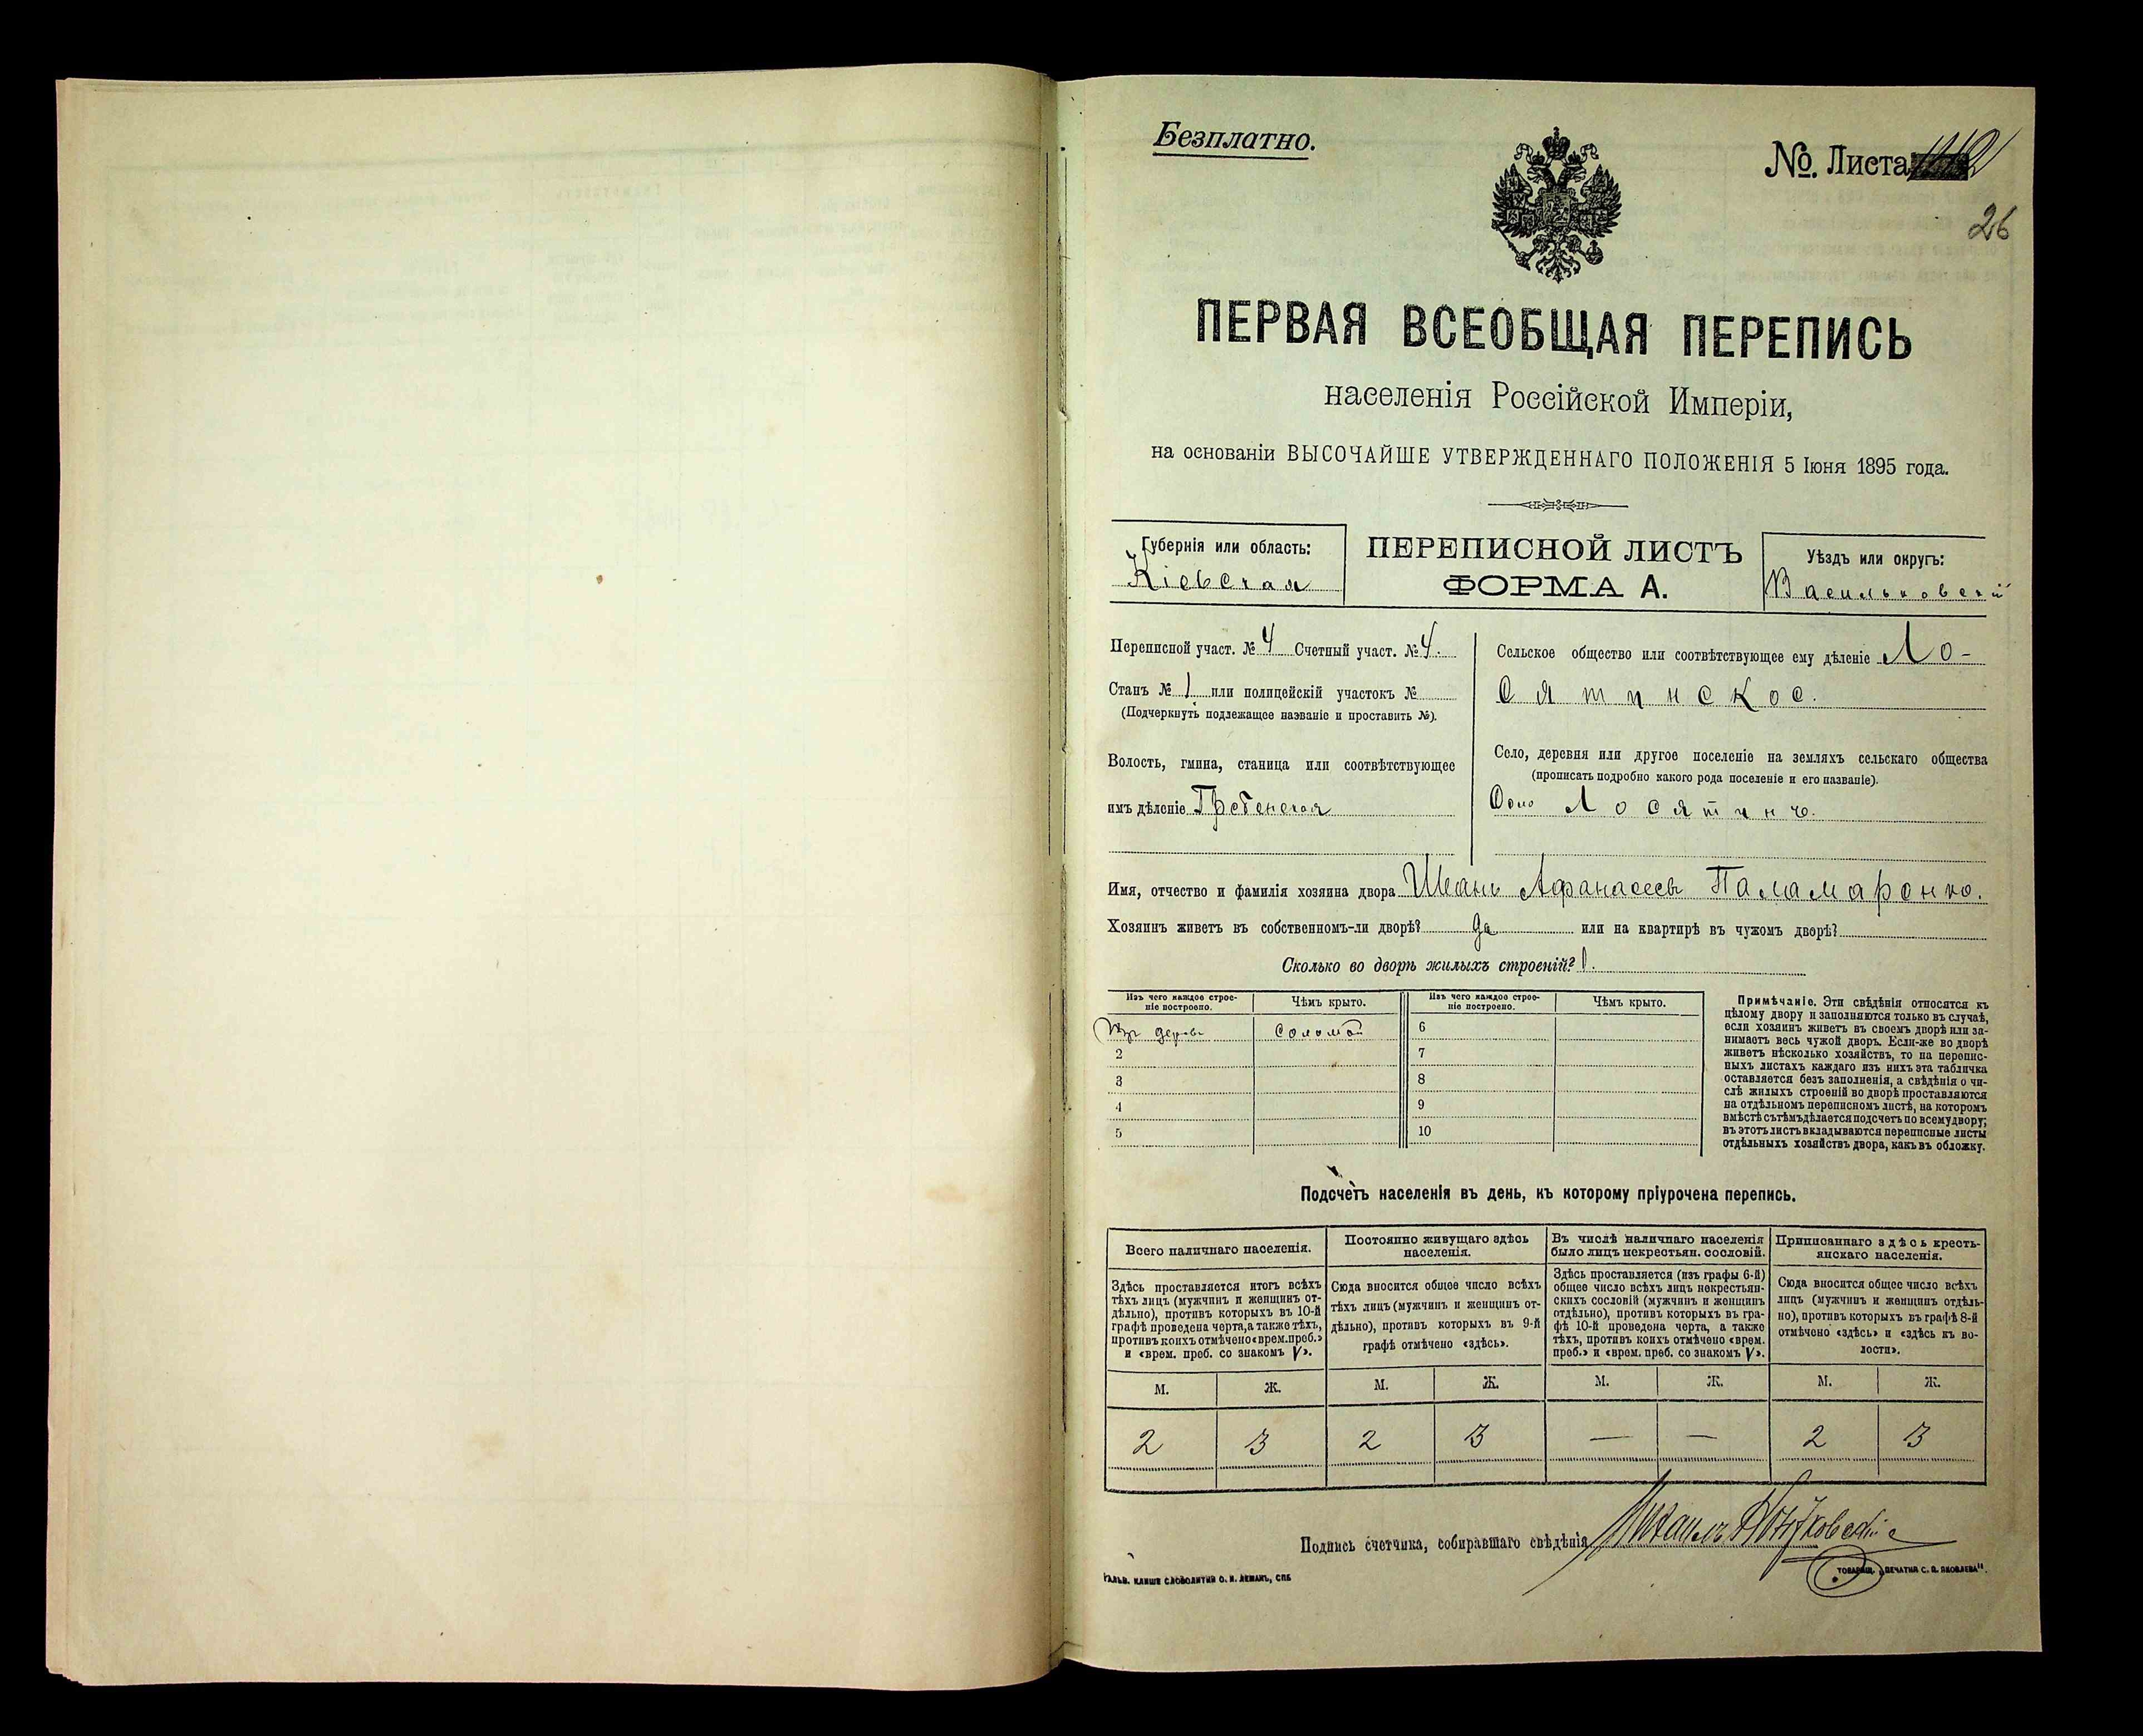 Безплатно.
№. Листа
26
ПЕРВАЯ ВСЕОБЩАЯ ПЕРЕПИСЬ
населенія Россійской Имперіи,
на основаніи ВЫСОЧАЙШЕ УТВЕРЖДЕННАГО ПОЛОЖЕНІЯ 5 Іюня 1895 года.
Губернія или область:
Кіевская
ПЕРЕПИСНОЙ ЛИСТЪ
ФОРМА А.
Уѣздъ или округъ:
Васильковскій
Переписной участ. № 4 Счетный участ. № 4.
Станъ № 1 или полицейскій участокъ №
(Подчеркнуть подлежащее названіе и проставить №).
Волость, гмина, станица или соотвѣтствующее
имъ дѣленіе Гребенская
Сельское общество или соотвѣтствующее ему дѣленіе Ло-
сятинское.
Село, деревня или другое поселеніе на земляхъ сельскаго общества
(прописать подробно какого рода поселеніе и его названіе).
Село Лосятинъ.
Имя, отчество и фамилія хозяина двора Иванъ Афанасьевъ Паламаренко.
Хозяинъ живетъ въ собственномъ-ли дворѣ? да или на квартирѣ въ чужомъ дворѣ?
Сколько во дворѣ жилыхъ строеній? 1.
Изъ чего каждое строе-
ніе построено.
Чѣмъ крыто.
Изъ чего каждое строе-
ніе построено.
Чѣмъ крыто.
Изъ дерева соломой 6
2 7
3 8
4 9
5 10
Примѣчаніе. Эти свѣдѣнія относятся къ
цѣлому двору и заполняются только въ случаѣ,
если хозяинъ живетъ въ своемъ дворѣ или за-
нимаетъ весь чужой дворъ. Если-же во дворѣ
живетъ нѣсколько хозяйствъ, то на перепис-
ныхъ листахъ каждаго изъ нихъ эта табличка
оставляется безъ заполненія, а свѣдѣнія о чи-
слѣ жилыхъ строеній во дворѣ проставляются
на отдѣльномъ переписномъ листѣ, на которомъ
вмѣстѣ съ тѣмъ дѣлается подсчетъ по всему двору;
въ этотъ листъ вкладываются переписные листы
отдѣльныхъ хозяйствъ двора, какъ въ обложку.
Подсчетъ населенія въ день, къ которому пріурочена перепись.
Всего наличнаго населенія.
Здѣсь проставляется итогъ всѣхъ
тѣхъ лицъ (мужчинъ и женщинъ от-
дѣльно), противъ которыхъ въ 10-й
графѣ проведена черта, а также тѣхъ,
противъ коихъ отмѣчено «врем. преб.»
и «врем. преб. со знакомъ V».
Постоянно живущаго здѣсь
населенія.
Сюда вносится общее число всѣхъ
тѣхъ лицъ (мужчинъ и женщинъ от-
дѣльно), противъ которыхъ въ 9-й
графѣ отмѣчено «здѣсь».
Въ числѣ наличнаго населенія
было лицъ некрестьян. сословій.
Здѣсь проставляется (изъ графы 6-й)
общее число всѣхъ лицъ некрестьян-
скихъ сословій (мужчинъ и женщинъ
отдѣльно), противъ которыхъ въ гра-
фѣ 10-й проведена черта, а также
тѣхъ, противъ коихъ отмѣчено «врем.
преб.» и «врем. преб. со знакомъ V».
Приписаннаго здѣсь кресть-
янскаго населенія.
Сюда вносится общее число всѣхъ
лицъ (мужчинъ и женщинъ отдѣль-
но), противъ которыхъ въ графѣ 8-й
отмѣчено «здѣсь» и «здѣсь въ во-
лости».
М. Ж. М. Ж. М. Ж. М. Ж.
2 3 2 3 — — 2 3
Подпись счетчика, собиравшаго свѣдѣнія Михаилъ
ГАЛЬВ. КЛИШЕ СЛОВОЛИТНИ О. И. ЛЕМАНЪ, СПБ
ТОВАРИЩ. „ПЕЧАТНЯ С. П. ЯКОВЛЕВА".